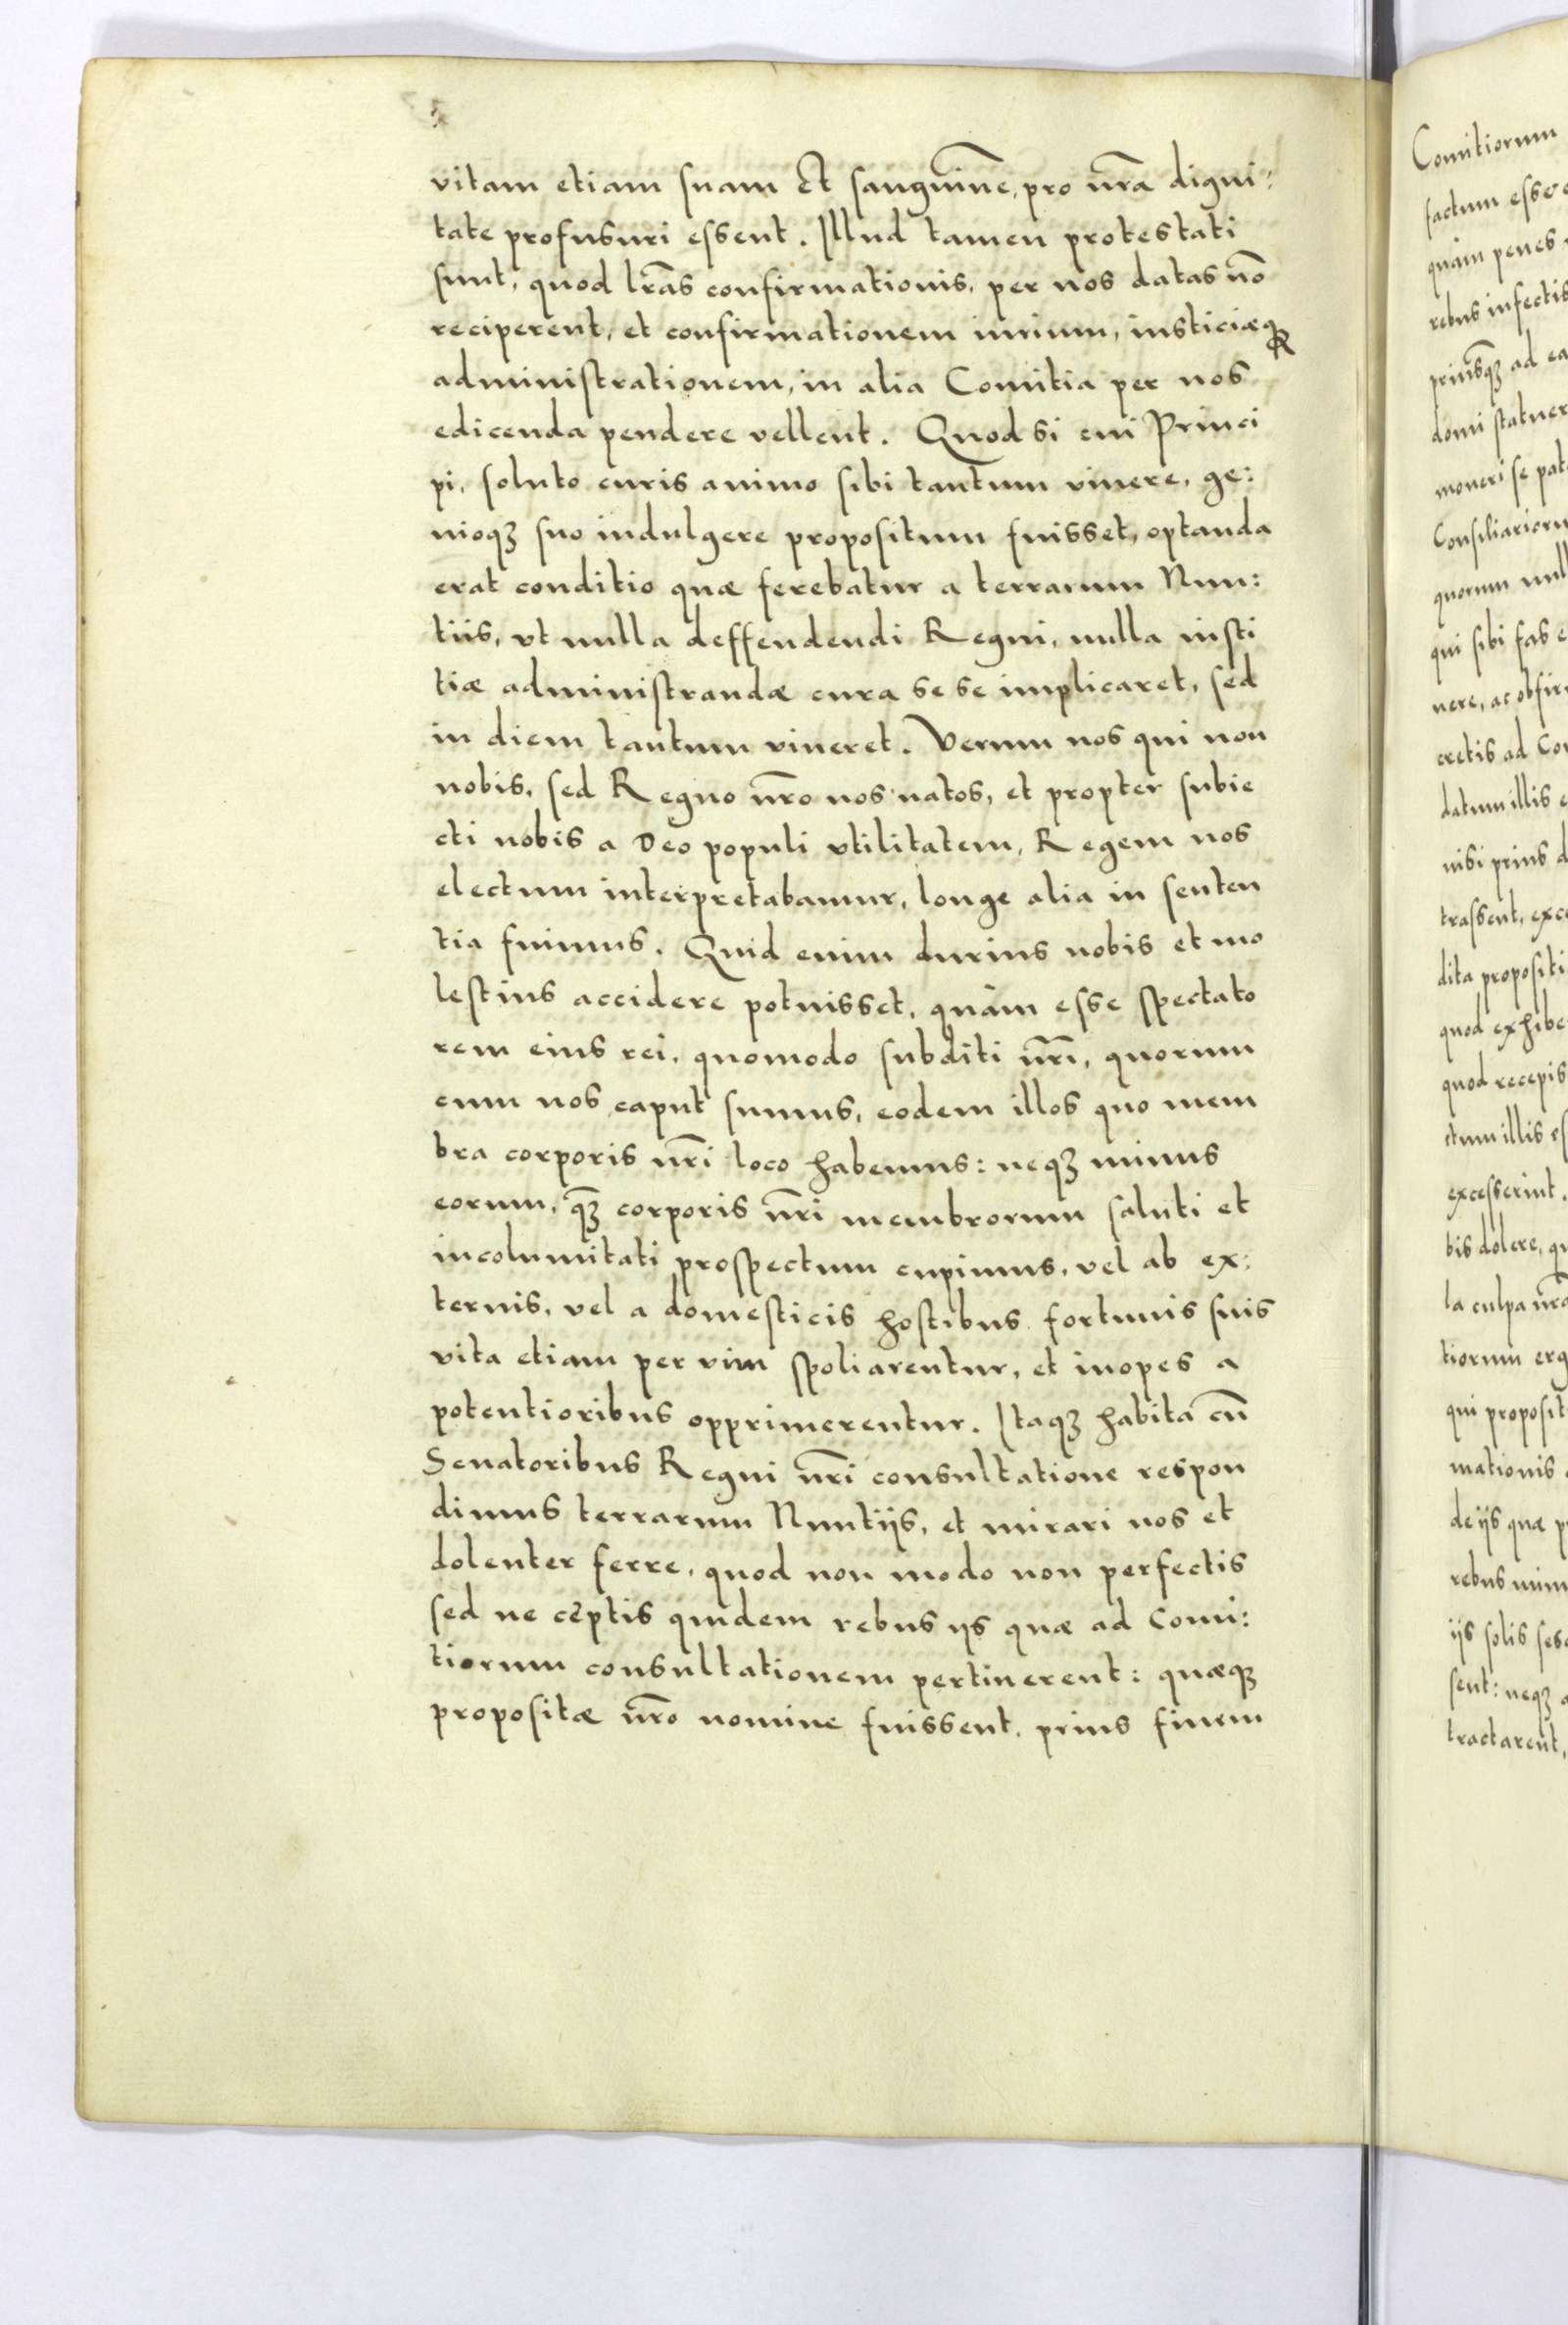 vitam etiam suam Et sanguinē, pro nr̃a digni:
tate profusuri essent. Illud tamen protestati
sunt, quod lr̃as confirmationis, per nos datas nō
reciperent, et confirmationem iurium, iusticiæq3
administrationem, in alia Comitia per nos
edicenda pendere vellent. Quod si cui Princi
pi, soluto curis animo sibi tantum viuere, ge:
nioq3 suo indulgere propositum fuisset, optanda
erat conditio quæ ferebatur a terrarum Nun:
tiis, vt nulla deffendendi Regni, nulla iusti
tiæ administrandæ cura se se implicaret, sed
in diem tantum viueret. Verum nos qui non
nobis, sed Regno nr̃o nos natos, et propter subie
cti nobis a Deo populi vtilitatem, Regem nos
electum interpretabamur, longe alia in senten
tia fuimus. Quid enim durius nobis et mo
lestius accidere potuisset, quàm esse spectato
rem eius rei, quomodo subditi nr̃i, quorum
cum nos caput sumus, eodem illos quo mem
bra corporis nr̃i loco habemus: neq3 minus
eorum, q̃3 corporis nr̃i membrorum saluti et
incolumitati prospectum cupimus, vel ab ex:
ternis, vel a domesticis hostibus fortunis suis
vita etiam per vim spoliarentur, et inopes a
potentioribus opprimerentur. Itaq3 habita cū
Senatoribus Regni nr̃i consultatione respon
dimus terrarum Nuntijs, et mirari nos et
dolenter ferre, quod non modo non perfectis
sed ne cęptis quidem rebus ijs quæ ad Comi:
tiorum consultationem pertinerent: quæq3
propositæ nr̃o nomine fuissent, prius finem
Comitiorum
factum esse
quàm penes
rebus infectis
priusq̃3 ad ea
domi statuer
moueri se pat
Consiliarioru
quorum null
qui sibi fas e
nere, ac obfir
cretis ad Co
datum illis e
nisi prius d
trassent, exc
dita propositi
quod exhibe
quod recepis
ctum illis es
excesserint.
bis dolere, qu
la culpa nr̃a
tiorum erg
qui proposit
mationis
de ijs quæ p
rebus nim
ijs solis ses
sent: neq3 a
tractarent,